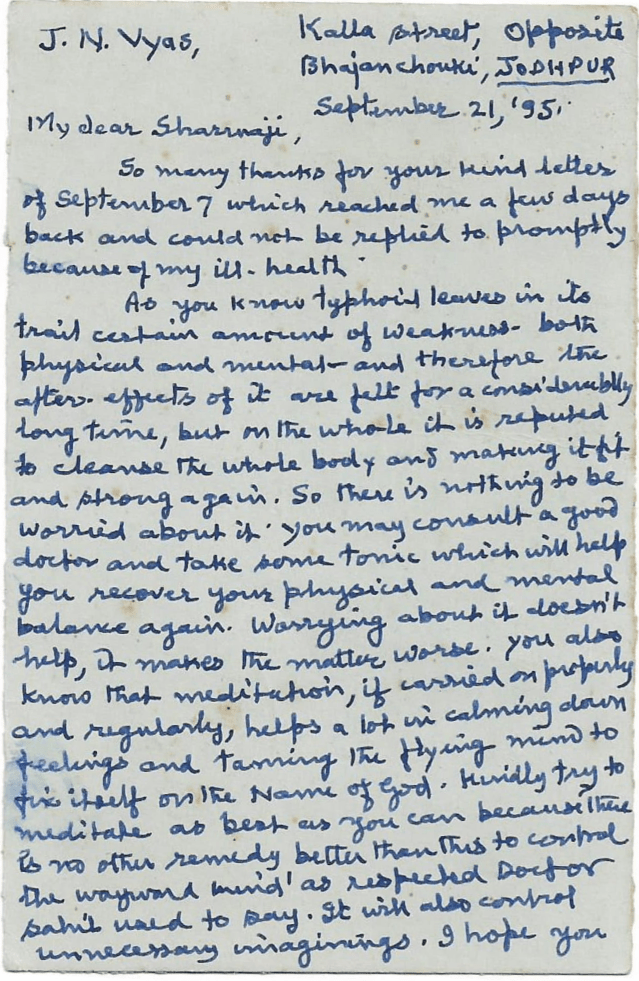 J. N. Vyas,
Kalla street, Opposite
Bhajanchouki, JODHPUR
September 21, '95.
My dear Sharmaji,
So many thanks for your kind letter
of September 7 which reached me a few days
back and could not be replied to promptly
because of my ill-health.
As you know typhoid leaves in its
trail certain amount of weakness- both
physical and mental- and therefore the
after-effects of it are felt for a considerably
long time, but on the whole it is reputed
to cleanse the whole body and making it fit
and strong again. So there is nothing to be
worried about it. You may consult a good
doctor and take some tonic which will help
you recover your physical and mental
balance again. Worrying about it doesn't
help, it makes the matter worse. You also
know that meditation, if carried on properly
and regularly, helps a lot in calming down
feelings and taming the flying mind to
fix itself on the Name of God. Kindly try to
meditate as best as you can because there
is no other remedy better than this to control
the wayward mind' as respected Doctor
sahib used to say. It will also control
unnecessary imaginings. I hope you